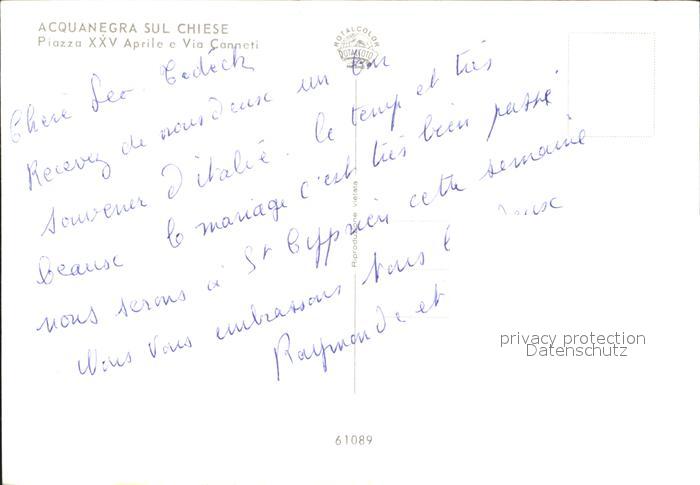 ACQUANEGRA SUL CHIESE
Piazza XXV Aprile e Via Canneti
ROTALCOLOR
ROTALFOTO
Chere Leo. Tedeck
Recevez de nous deuse un bon
souvener d'italie. le temp et tres
beause le mariage c'est très bien passé
nous serons à St Cyprien cette semaine
Nous vous embrassons tous l deuse
Raymonde et
Riproduzione vietata
privacy protection
Datenschutz
61089